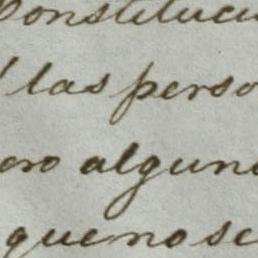 Constituci
las perso
ero alguno
que no se